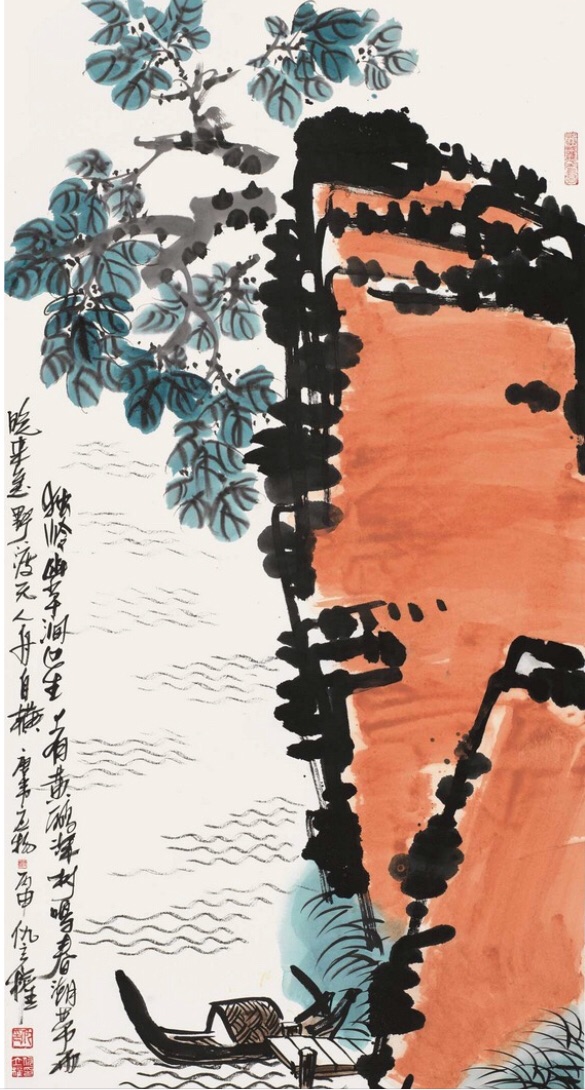 独怜幽草涧边生上有黄鹂深树鸣春潮带雨
晚来急野渡无人舟自横 唐韦应物 丙申 仇立權